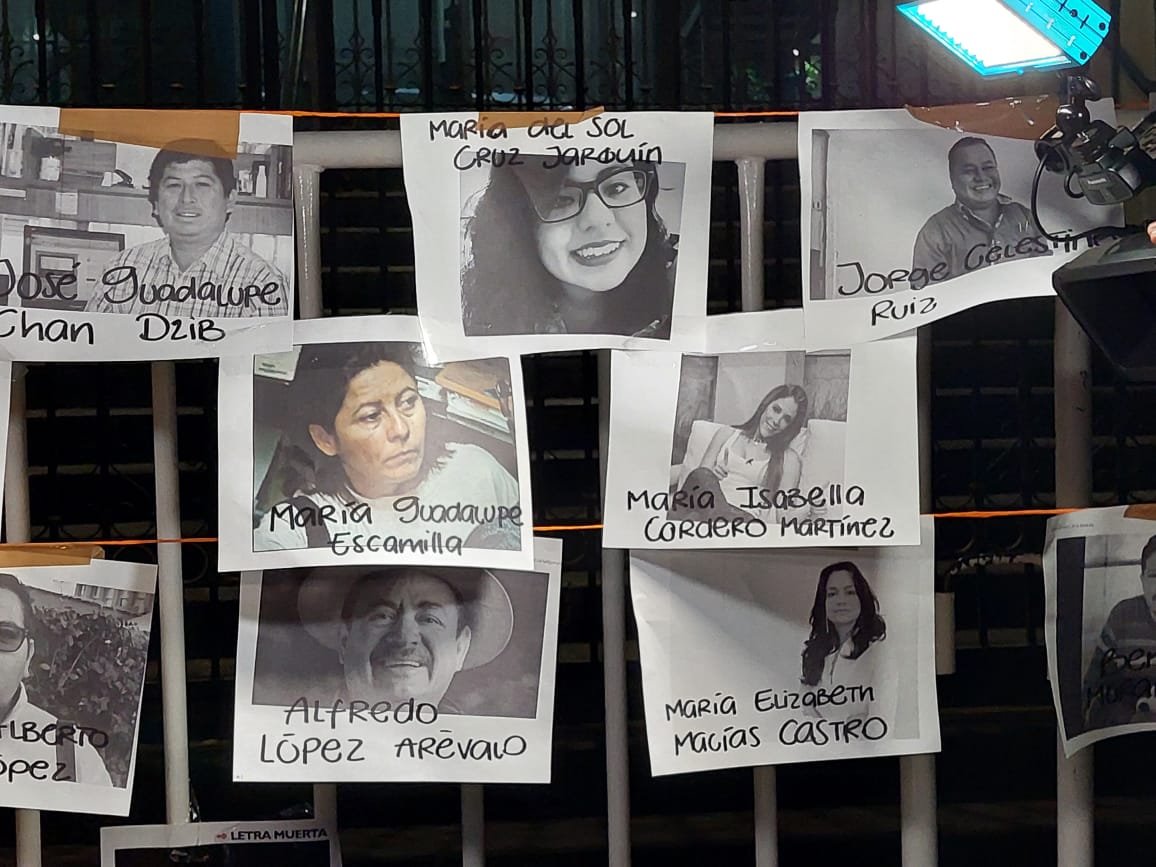 José Guadalupe
Chan Dzib
María del Sol
Cruz Jarquín
Jorge Celestino
Ruiz
María Guadalupe
Escamilla
María Isabella
Cordero Martínez
Alberto
López
Alfredo
López Arévalo
María Elizabeth
Macías Castro
LETRA MUERTA